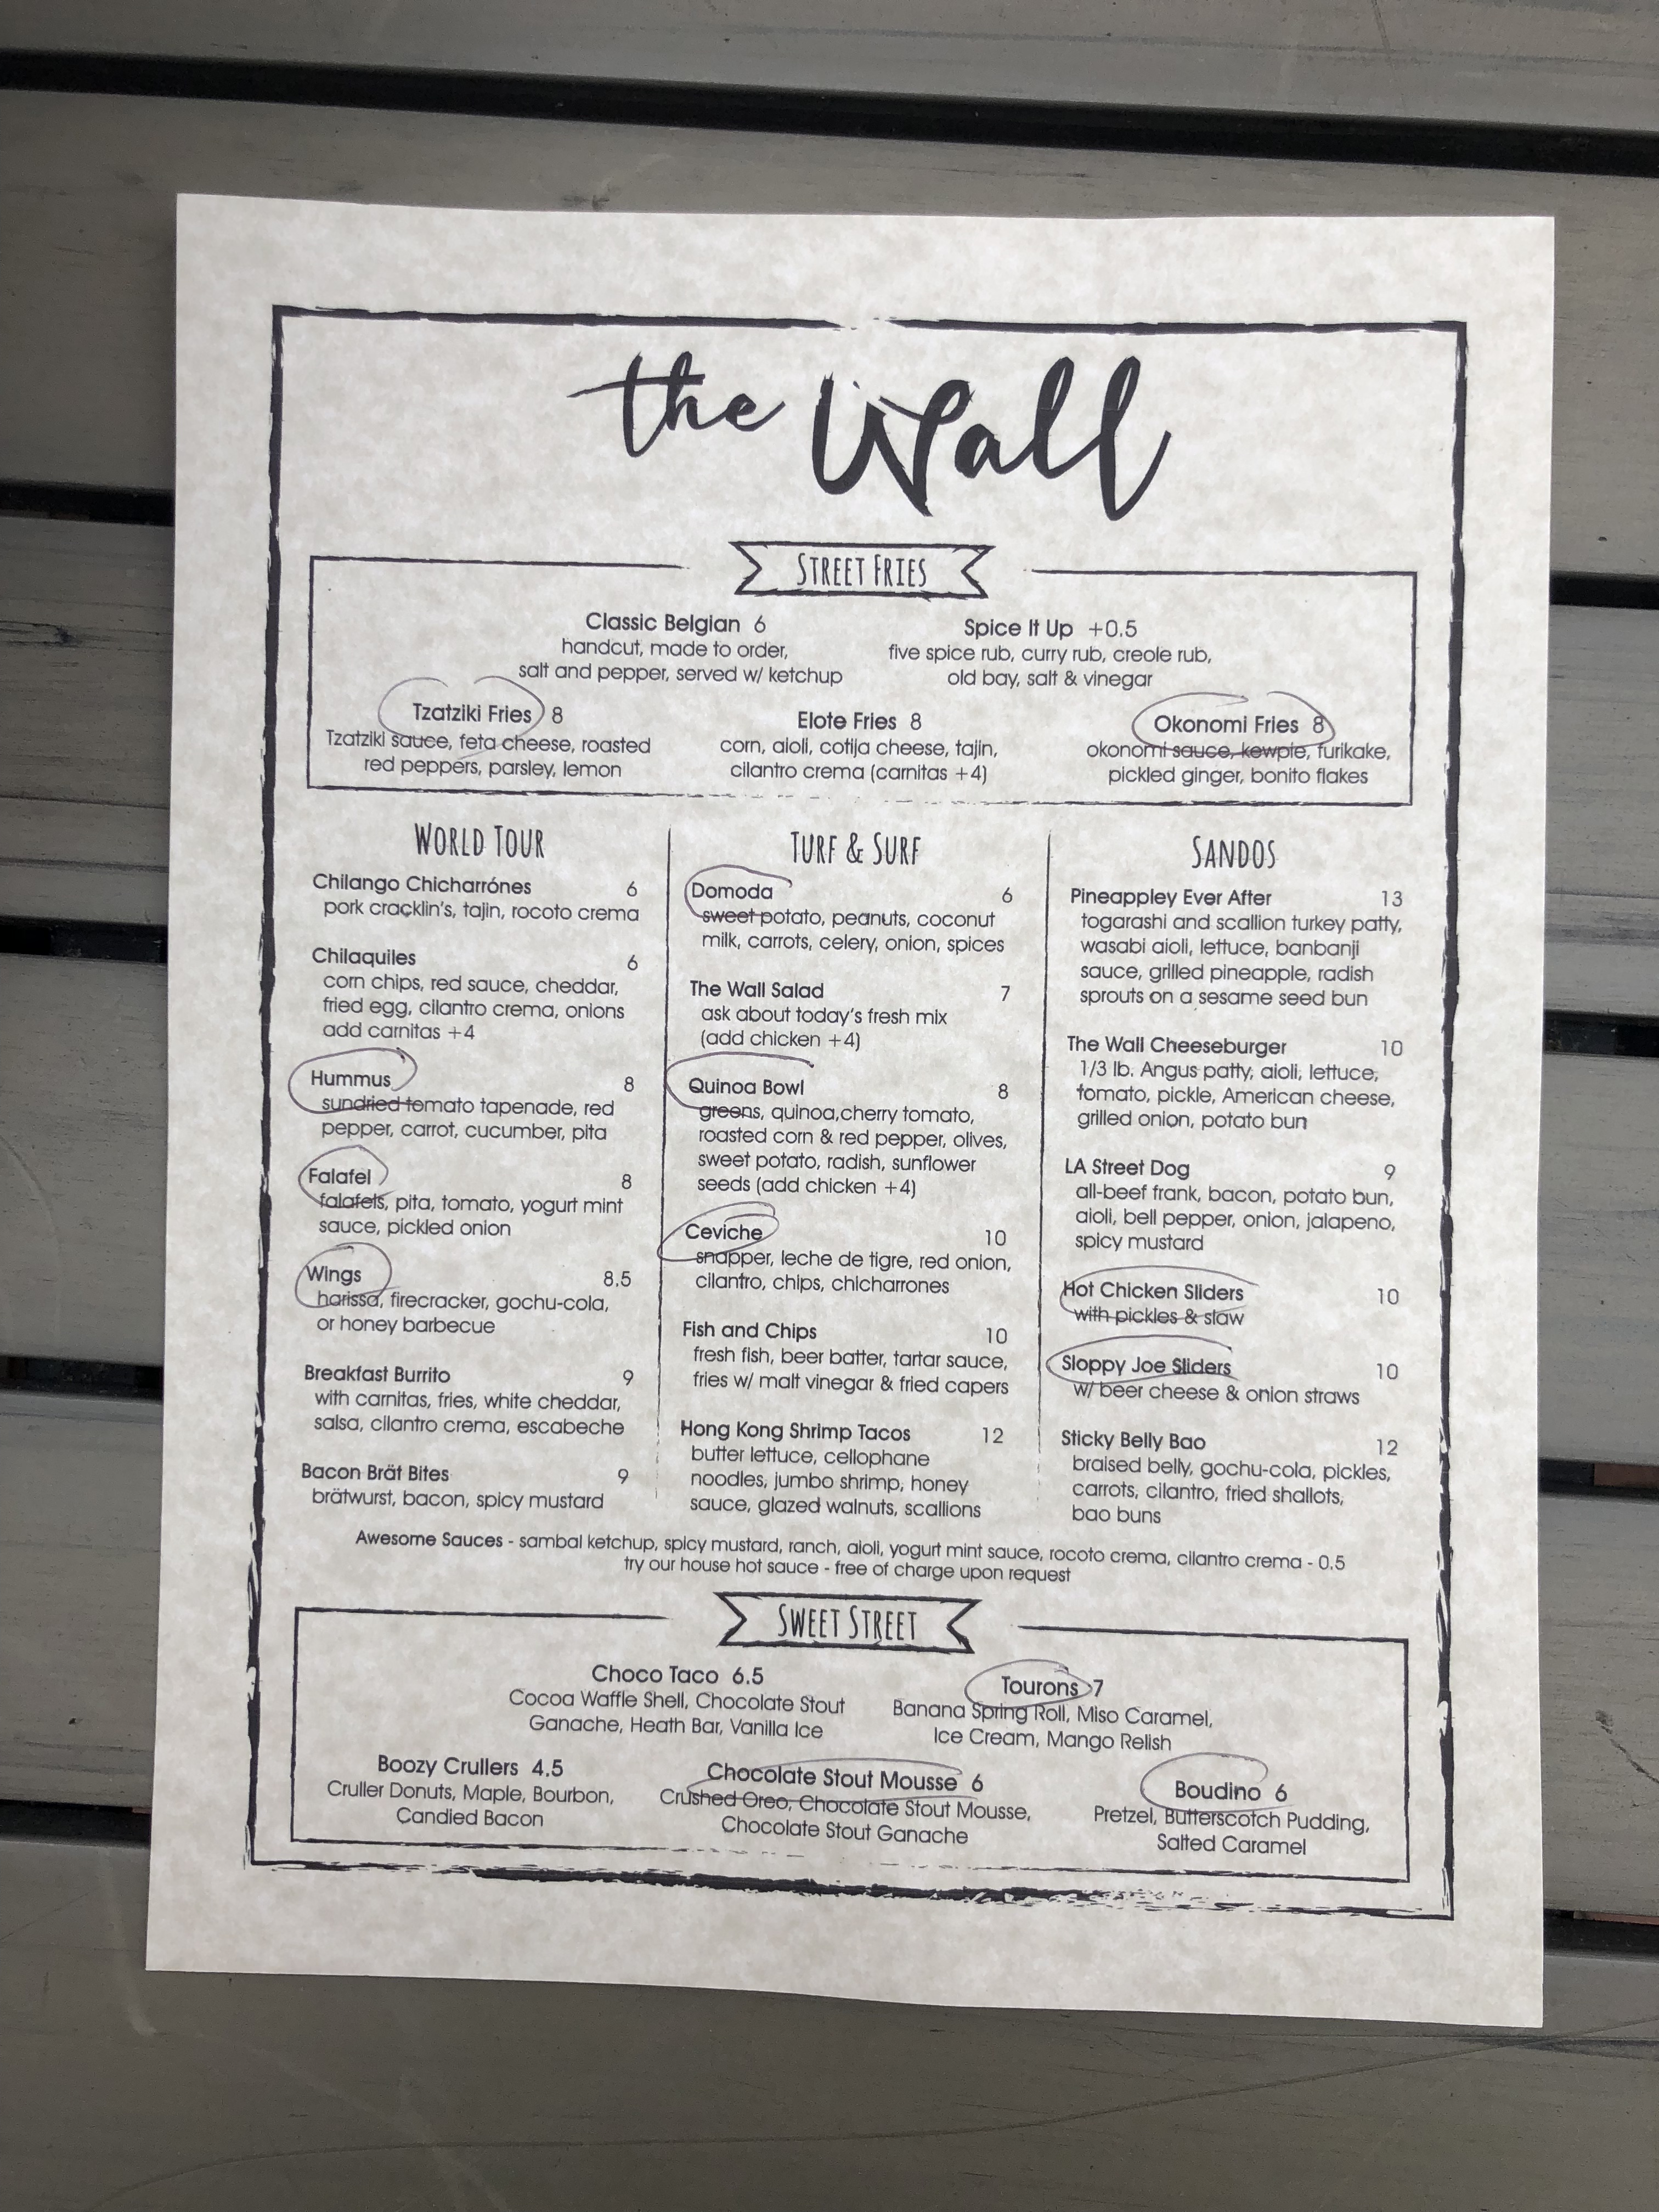 the Wall
STREET FRIES
Classic Belgian 6
handcut, made to order,
salt and pepper, served w/ ketchup
Spice It Up +0.5
five spice rub, curry rub, creole rub,
old bay, salt & vinegar
Tzatziki Fries 8
Tzatziki sauce, feta cheese, roasted
red peppers, parsley, lemon
Elote Fries 8
corn, aioli, cotija cheese, tajin,
cilantro crema (carnitas +4)
Okonomi Fries 8
okonomi sauce, kewpie, furikake,
pickled ginger, bonito flakes
WORLD TOUR
Chilango Chicharrónes 6
pork cracklin's, tajin, rocoto crema
Chilaquiles 6
corn chips, red sauce, cheddar,
fried egg, cilantro crema, onions
add carnitas +4
Hummus 8
sundried tomato tapenade, red
pepper, carrot, cucumber, pita
Falafel 8
falafels, pita, tomato, yogurt mint
sauce, pickled onion
Wings 8.5
harissa, firecracker, gochu-cola,
or honey barbecue
Breakfast Burrito 9
with carnitas, fries, white cheddar,
salsa, cilantro crema, escabeche
Bacon Brät Bites 9
brätwurst, bacon, spicy mustard
TURF & SURF
Domoda 6
sweet potato, peanuts, coconut
milk, carrots, celery, onion, spices
The Wall Salad 7
ask about today's fresh mix
(add chicken +4)
Quinoa Bowl 8
greens, quinoa,cherry tomato,
roasted corn & red pepper, olives,
sweet potato, radish, sunflower
seeds (add chicken +4)
Ceviche 10
snapper, leche de tigre, red onion,
cilantro, chips, chicharrones
Fish and Chips 10
fresh fish, beer batter, tartar sauce,
fries w/ malt vinegar & fried capers
Hong Kong Shrimp Tacos 12
butter lettuce, cellophane
noodles, jumbo shrimp, honey
sauce, glazed walnuts, scallions
SANDOS
Pineappley Ever After 13
togarashi and scallion turkey patty,
wasabi aioli, lettuce, banbanji
sauce, grilled pineapple, radish
sprouts on a sesame seed bun
The Wall Cheeseburger 10
1/3 lb. Angus patty, aioli, lettuce,
tomato, pickle, American cheese,
grilled onion, potato bun
LA Street Dog 9
all-beef frank, bacon, potato bun,
aioli, bell pepper, onion, jalapeno,
spicy mustard
Hot Chicken Sliders 10
with pickles & slaw
Sloppy Joe Sliders 10
w/ beer cheese & onion straws
Sticky Belly Bao 12
braised belly, gochu-cola, pickles,
carrots, cilantro, fried shallots,
bao buns
Awesome Sauces - sambal ketchup, spicy mustard, ranch, aioli, yogurt mint sauce, rocoto crema, cilantro crema - 0.5
try our house hot sauce - free of charge upon request
SWEET STREET
Choco Taco 6.5
Cocoa Waffle Shell, Chocolate Stout
Ganache, Heath Bar, Vanilla Ice
Tourons 7
Banana Spring Roll, Miso Caramel,
Ice Cream, Mango Relish
Boozy Crullers 4.5
Cruller Donuts, Maple, Bourbon,
Candied Bacon
Chocolate Stout Mousse 6
Crushed Oreo, Chocolate Stout Mousse,
Chocolate Stout Ganache
Boudino 6
Pretzel, Butterscotch Pudding,
Salted Caramel